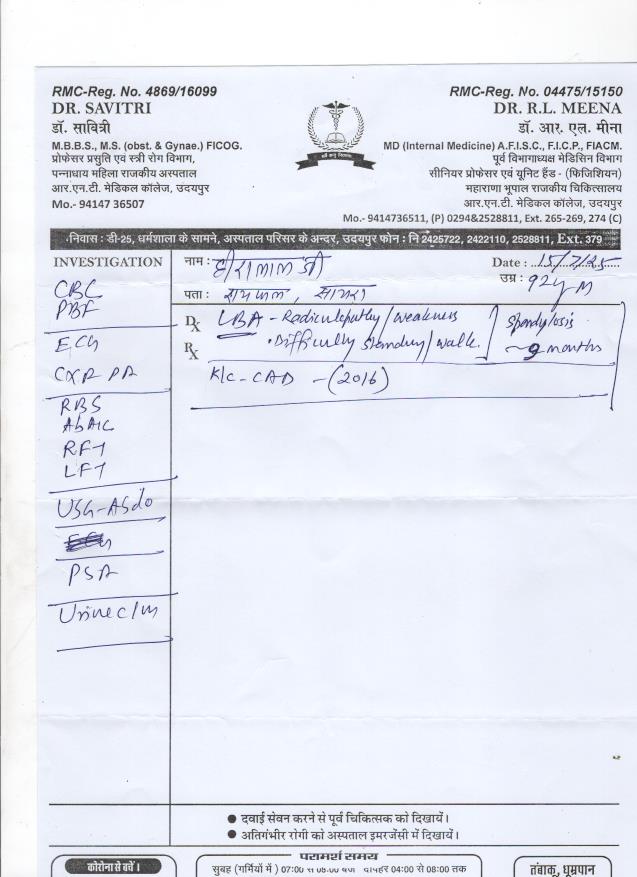 RMC-Reg. No. 4869/16099
DR. SAVITRI
डॉ. सावित्री
M.B.B.S., M.S. (obst. & Gynae.) FICOG.
प्रोफेसर प्रसुति एवं स्त्री रोग विभाग,
पन्नाधाय महिला राजकीय अस्पताल
आर.एन.टी. मेडिकल कॉलेज, उदयपुर
Mo.- 94147 36507
RMC-Reg. No. 04475/15150
DR. R.L. MEENA
डॉ. आर. एल. मीना
MD (Internal Medicine) A.F.I.S.C., F.I.C.P., FIACM.
पूर्व विभागाध्यक्ष मेडिसिन विभाग
सीनियर प्रोफेसर एवं यूनिट हैंड - (फिजिशियन)
महाराणा भूपाल राजकीय चिकित्सालय
आर.एन.टी. मेडिकल कॉलेज, उदयपुर
Mo.- 9414736511, (P) 0294&2528811, Ext. 265-269, 274 (C)
निवास : डी-25, धर्मशाला के सामने, अस्पताल परिसर के अन्दर, उदयपुर फोन : नि 2425722, 2422110, 2528811, Ext. 379
INVESTIGATION
CBC
PBF
ECG
CXR PA
RBS
HbA1C
RFT
LFT
USG-Abdo
PSA
Urine c/m
नाम : हीरालाल जी
Date : 15/7/25
उम्र : 92y M
पता : सायरा
Dx LBA - Radiculopathy / weakness / Spondylosis
Rx • Difficulty standing / walk. ~ 9 months
K/c - CAD - (2016)
● दवाई सेवन करने से पूर्व चिकित्सक को दिखायें।
● अतिगंभीर रोगी को अस्पताल इमरजेंसी में दिखायें।
कोरोना से बचें।
परामर्श समय
सुबह (गर्मियों में) 07:00 से 09:00 बजे दोपहर 04:00 से 08:00 तक
तंबाकु, धुम्रपान